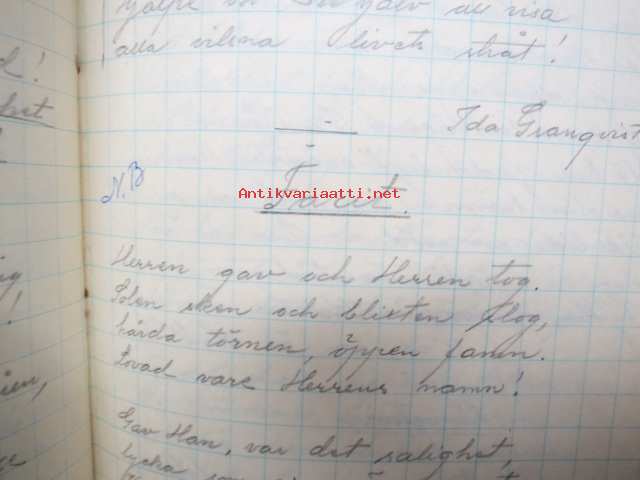 hjälpe oss Du själv att visa
alla vilsna livets stråt!
Ida Granqvist
N.B
Tacit.
Antikvariaatti.net
Herren gav och Herren tog.
Solen sken och blixten slog,
hårda törnen, öppen famn.
Lovad vare Herrens namn!
Gav Han, var det salighet,
lycka